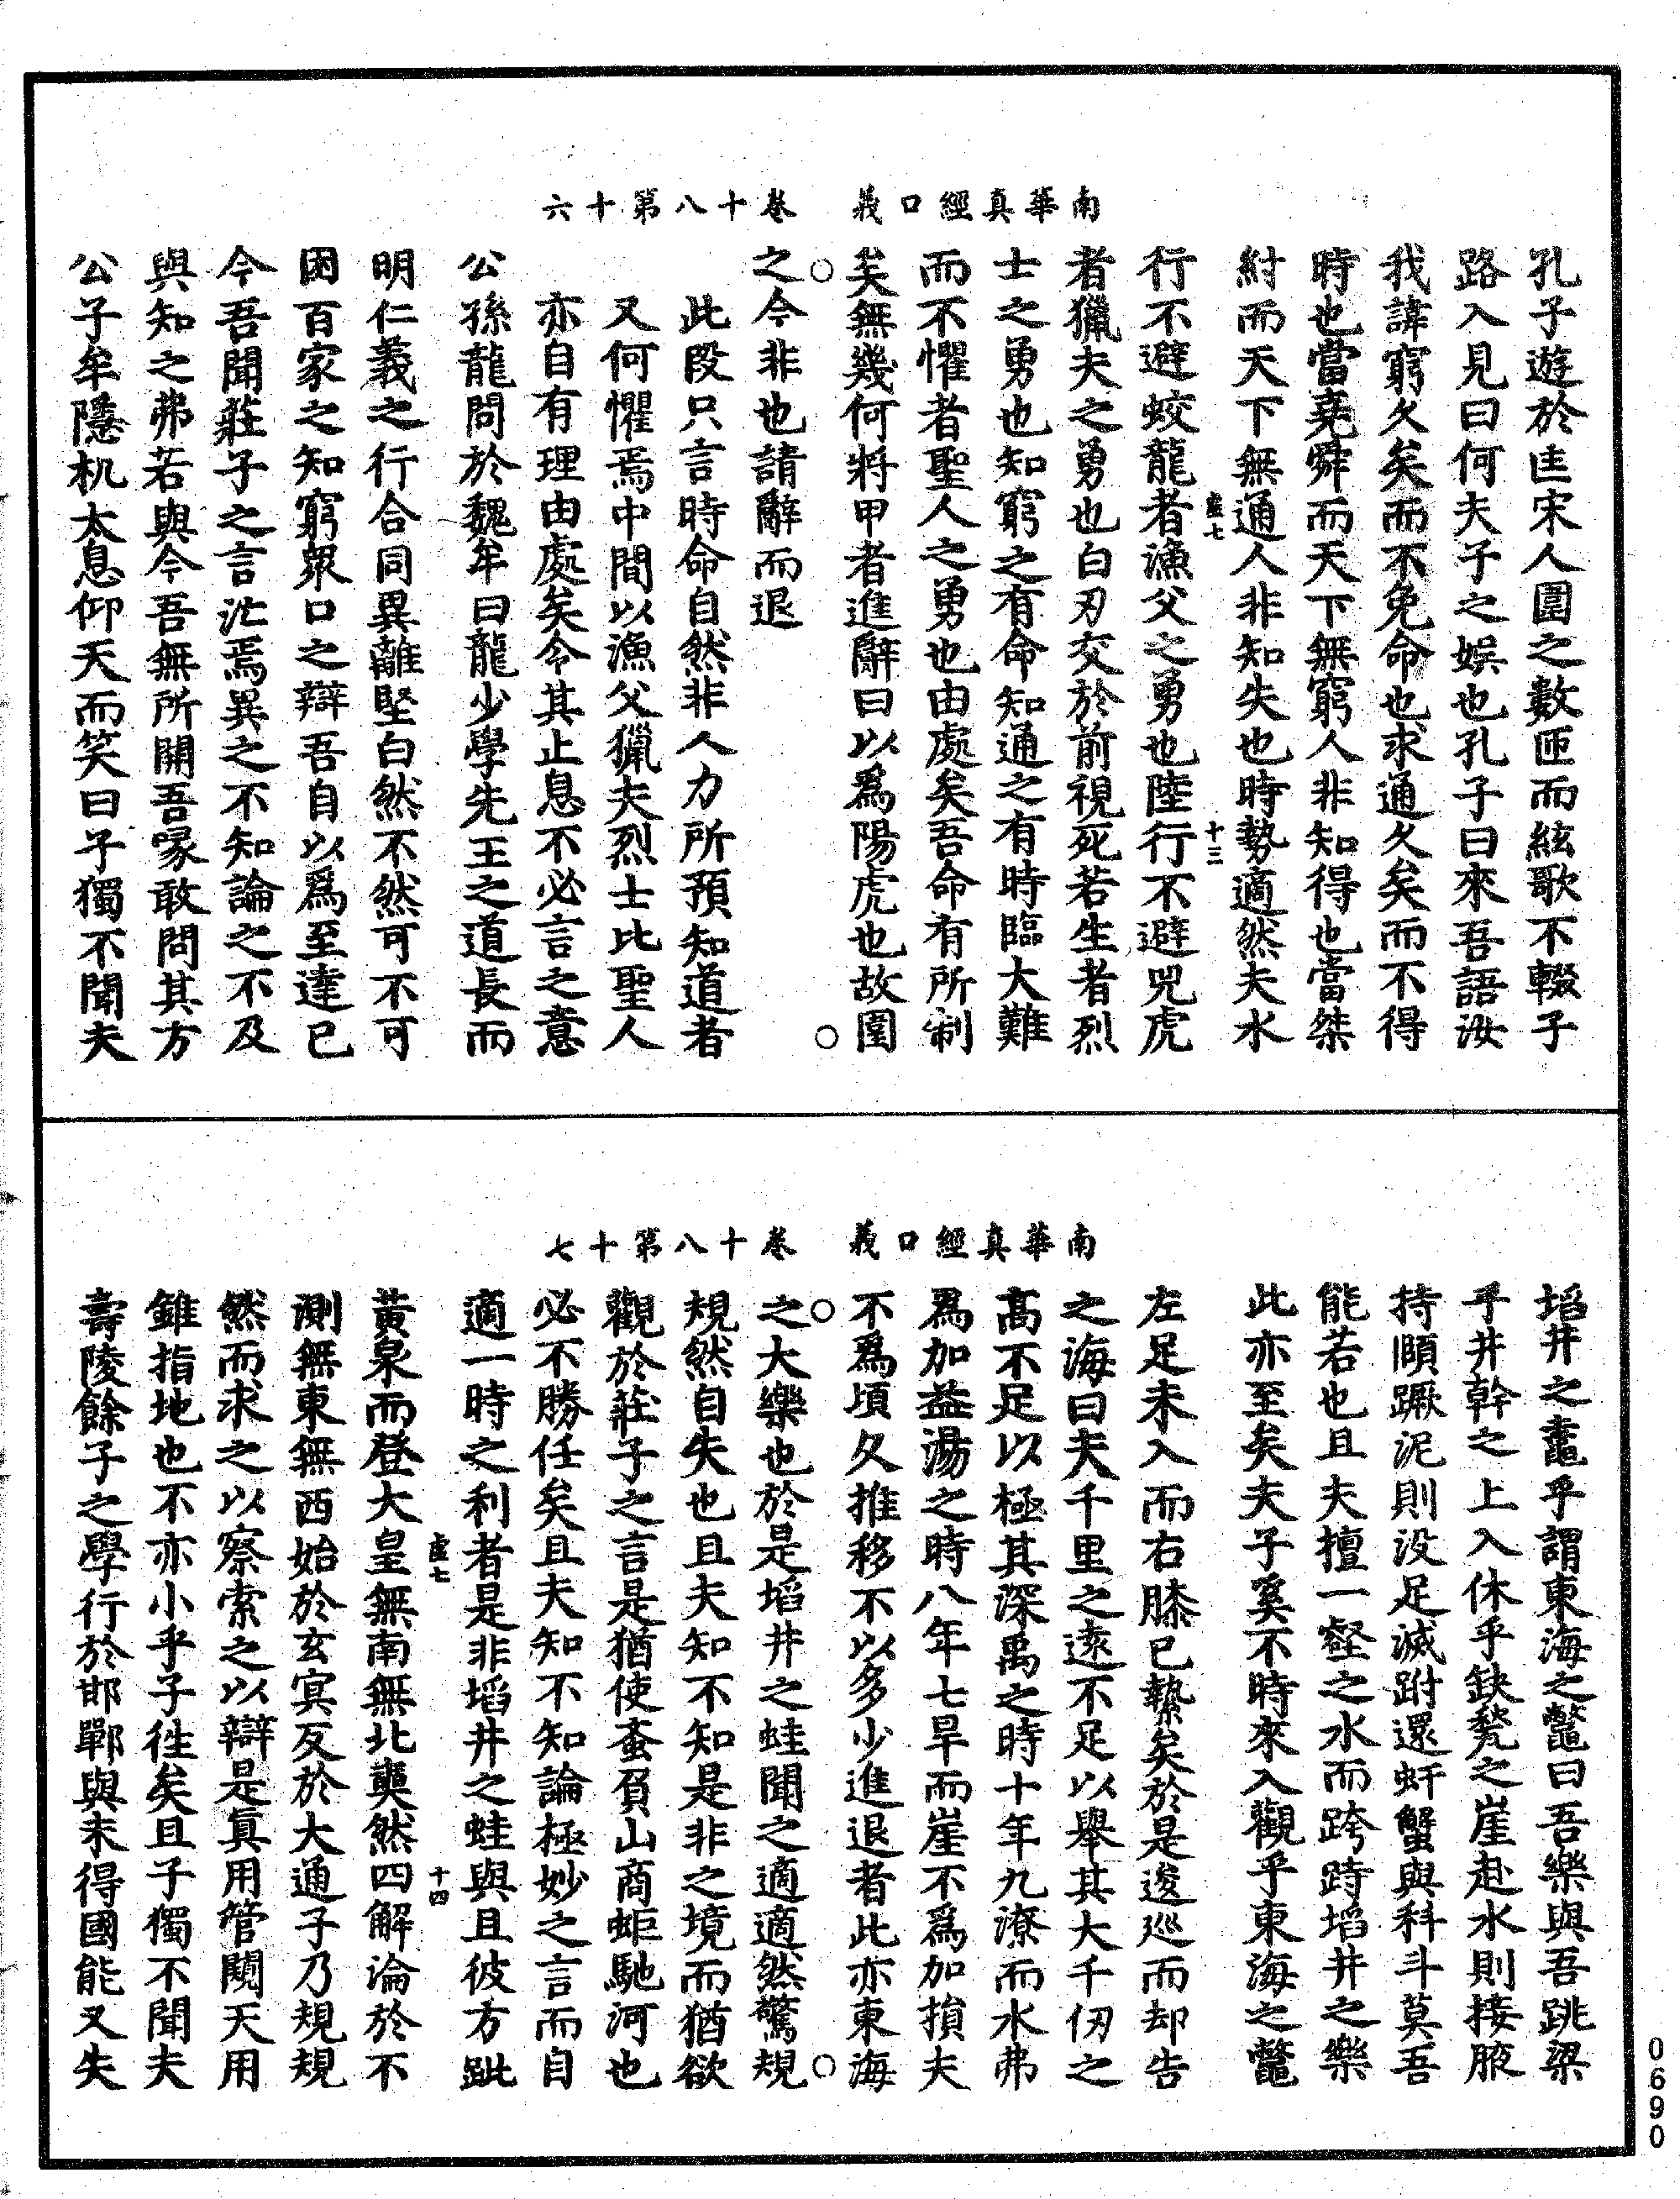 南華真經口義　卷十八第十六
孔子遊於匡宋人圍之數匝而絃歌不輟子
路入見曰何夫子之娛也孔子曰來吾語汝
我諱窮久矣而不免命也求通久矣而不得
時也當堯舜而天下無窮人非知得也當桀
紂而天下無通人非知失也時勢適然夫水
虛七　十三
行不避蛟龍者漁父之勇也陸行不避兕虎
者獵夫之勇也白刃交於前視死若生者烈
士之勇也知窮之有命知通之有時臨大難
而不懼者聖人之勇也由處矣吾命有所制
矣無幾何將甲者進辭曰以爲陽虎也故圍
○　○
之今非也請辭而退
此段只言時命自然非人力所預知道者
又何懼焉中間以漁父獵夫烈士比聖人
亦自有理由處矣令其止息不必言之意
公孫龍問於魏牟曰龍少學先王之道長而
明仁義之行合同異離堅白然不然可不可
困百家之知窮衆口之辯吾自以爲至達已
今吾聞莊子之言汒焉異之不知論之不及
與知之弗若與今吾無所開吾喙敢問其方
公子牟隱机太息仰天而笑曰子獨不聞夫
南華真經口義　卷十八第十七
埳井之鼃乎謂東海之鼈曰吾樂與吾跳梁
乎井幹之上入休乎缺甃之崖赴水則接腋
持頤蹶泥則没足滅跗還虷蟹與科斗莫吾
能若也且夫擅一壑之水而跨跱埳井之樂
此亦至矣夫子奚不時來入觀乎東海之鼈
左足未入而右膝已縶矣於是逡巡而却告
之海曰夫千里之遠不足以舉其大千仞之
高不足以極其深禹之時十年九潦而水弗
爲加益湯之時八年七旱而崖不爲加損夫
不爲頃久推移不以多少進退者此亦東海
○　○
之大樂也於是埳井之蛙聞之適適然驚規
規然自失也且夫知不知是非之境而猶欲
觀於莊子之言是猶使蚉負山商蚷馳河也
必不勝任矣且夫知不知論極妙之言而自
適一時之利者是非埳井之蛙與且彼方跐
虛七　十四
黃泉而登大皇無南無北奭然四解淪於不
測無東無西始於玄冥反於大通子乃規規
然而求之以察索之以辯是真用管闚天用
錐指地也不亦小乎子徃矣且子獨不聞夫
壽陵餘子之學行於邯鄲與未得國能又失
0690